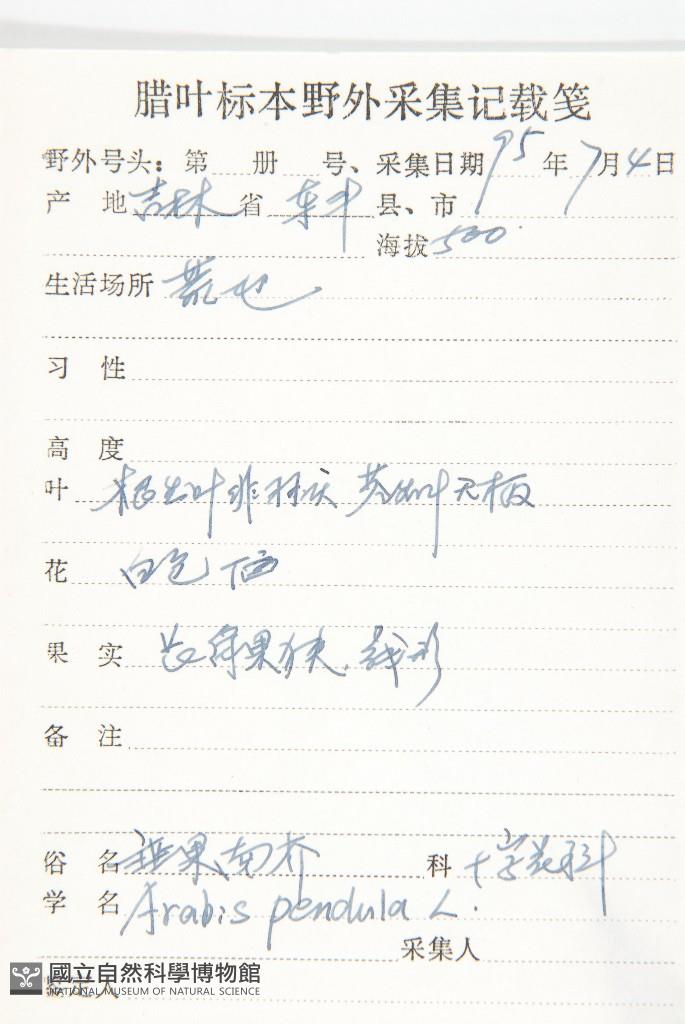 腊叶标本野外采集记载笺
野外号头:第 册 号、采集日期 95 年 7 月 4 日
产 地 吉林 省 县、市
海拔 500
生活场所 荒地
习 性
高 度
叶 根生叶 茎生叶无柄
花 白色
果 实 长角果 线形
备 注
俗 名 垂果南芥 科 十字花科
学 名 Arabis pendula L.
采集人
鉴定人
國立自然科學博物館
NATIONAL MUSEUM OF NATURAL SCIENCE